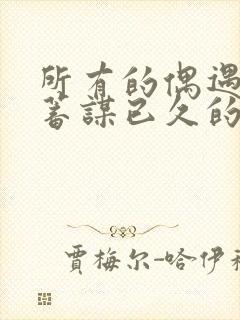 所有的偶遇
蓄謀已久的
賈梅尔-哈伊